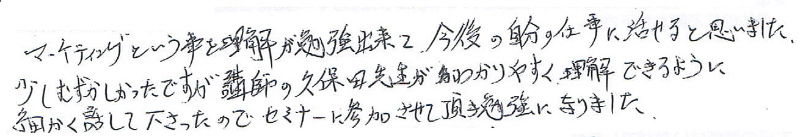 マーケティングという事を理解が勉強出来て、今後の自分の仕事に活せると思いました。
少しむずかしかったですが講師の久保田先生がわかりやすく理解できるように
細かく話して下さったのでセミナーに参加させて頂き勉強になりました。